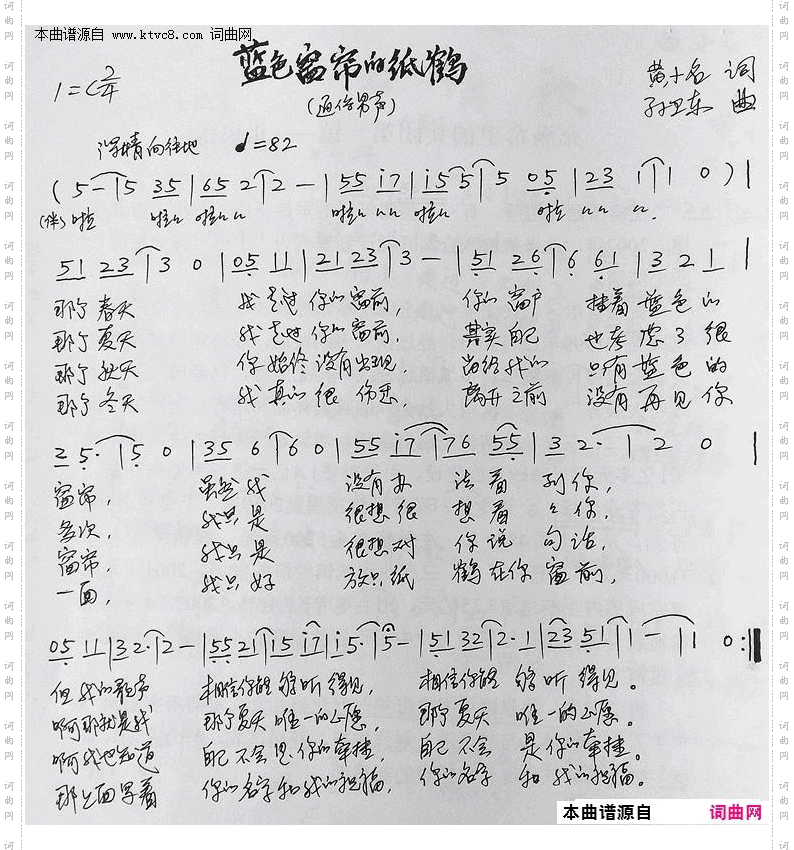 本曲谱源自 www.ktvc8.com 词曲网
蓝色窗帘的纸鹤
(通俗男声)
1=C 2/4
黄十名 词
孙卫东 曲
深情向往地 ♩=82
(5-|5 35|65 2|2-|55 i7|i5 5|5 05|23 1|1 0)|
(伴)啦 啦 啦 啦 啦 啦
51 23|3 0|05 11|21 23|3-|51 26|6 61|3 21|
那个春天 我走过你的窗前, 你的窗户 挂着蓝色的
那个夏天 我走过你的窗前. 其实自己 也考虑了很
那个秋天 你始终没有出现. 留给我的 只有蓝色的
那个冬天 我真的很伤悲 离开之前 没有再见你
25·|5 0|35 6|6 0|55 i7|76 55|3 2·|2 0|
窗帘, 虽然我 没有办法看到你,
多次, 我只是 很想很想看看你,
窗帘, 我只是 很想对你说句话,
一面, 我只好 放只纸鹤在你窗前,
05 11|32·|2-|55 21|15 i7|i5·|5-|51 32|2·1|23 51|1-|1 0:‖
但我的歌声 相信你能够听得见, 相信你能够听得见。
啊那就是我 那个夏天唯一的心愿, 那个夏天唯一的心愿。
啊我也知道 自己不会是你的牵挂, 自己不会是你的牵挂。
那上面写着 你的名字和我的祝福, 你的名字和我的祝福。
本曲谱源自 词曲网